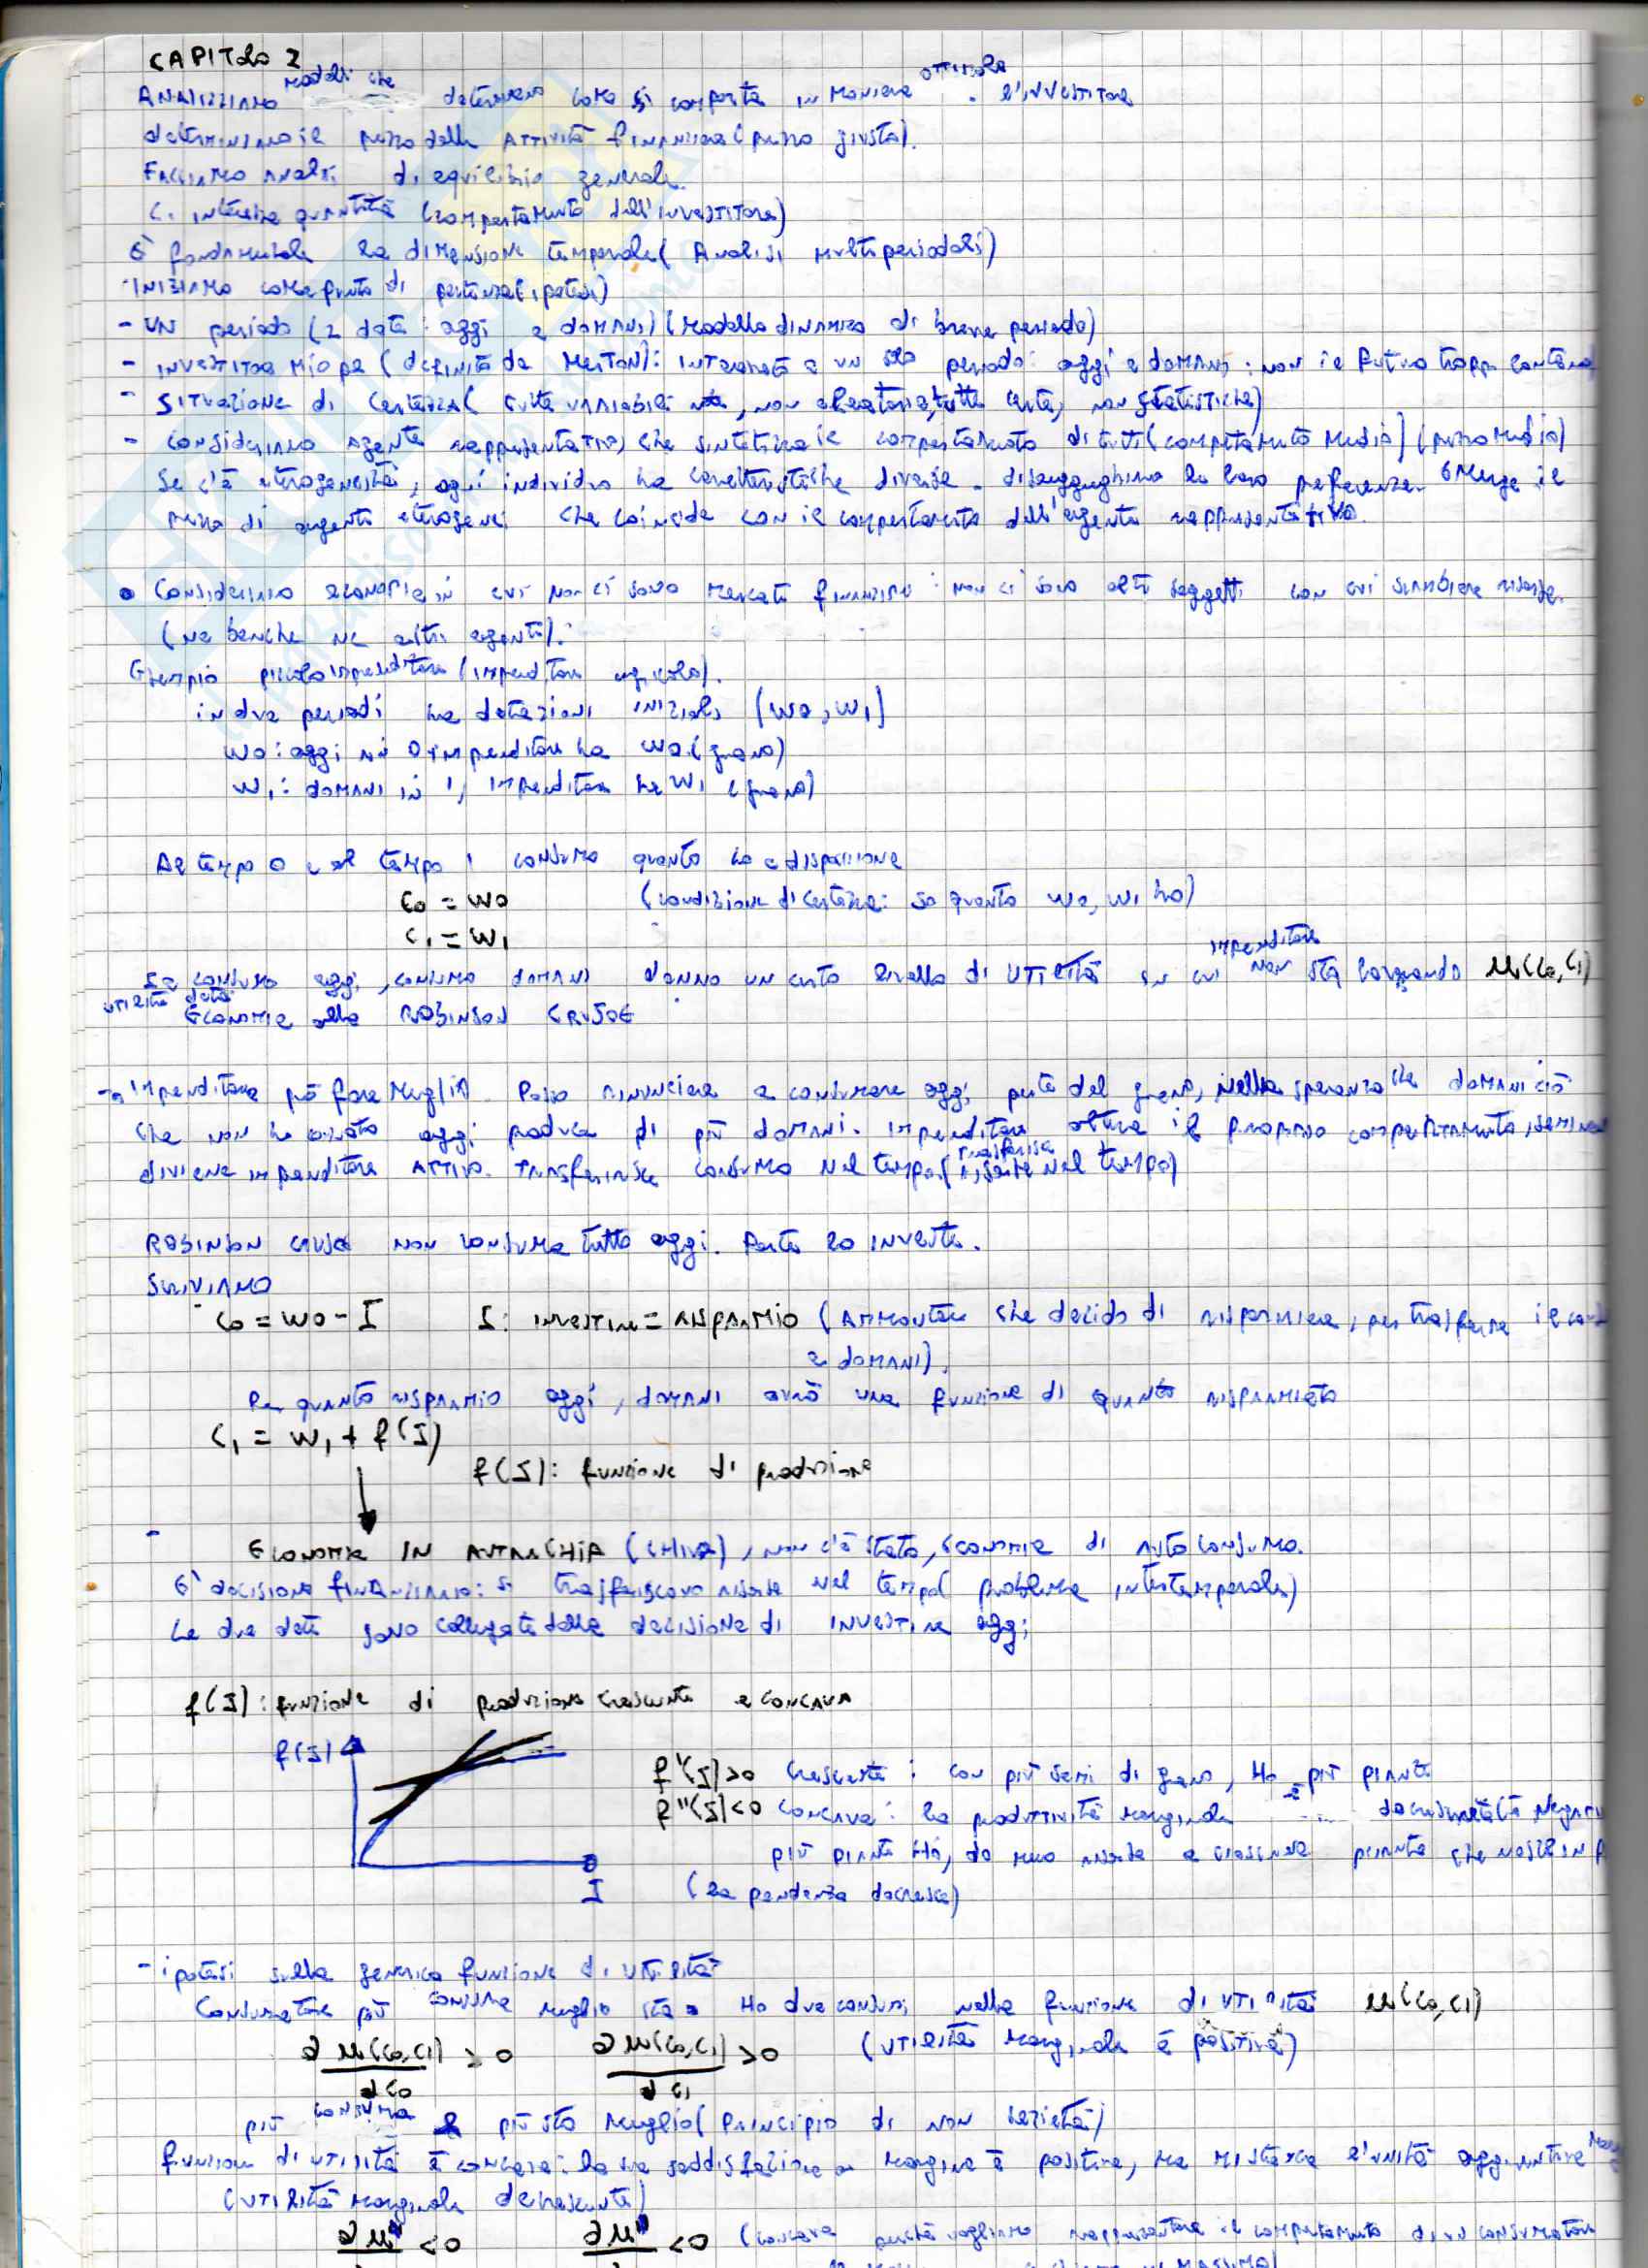 CAPITOLO 2
ANALIZZIAMO modelli che determinano come si comporta in maniera ottimale l'investitore
determiniamo il prezzo delle attività finanziarie (prezzo giusto).
Facciamo analisi di equilibrio generale.
Ci interessa quantità (comportamento dell'investitore)
È fondamentale la dimensione temporale (Analisi multiperiodali)
INIZIAMO come punto di partenza (ipotesi)
- UN periodo (2 date: oggi e domani) (modello dinamico di breve periodo)
- INVESTITORE MIOPE (definito da Merton): interessato a un solo periodo: oggi e domani; non il futuro troppo lontano
- SITUAZIONE di certezza (tutte variabili note, non aleatorie, tutte certe, non statistiche)
- consideriamo agente rappresentativo, che sintetizza il comportamento di tutti (comportamento medio) (prezzo medio)
Se c'è eterogeneità, ogni individuo ha caratteristiche diverse. le loro preferenze. Emerge il
prezzo di agenti eterogenei che coincide con il comportamento dell'agente rappresentativo.
• Consideriamo economie in cui non ci sono mercati finanziari: non ci sono altri soggetti con cui scambiare risorse.
(ne banche ne altri agenti).
Esempio piccolo imprenditore (imprenditore agricolo).
in due periodi ha dotazioni iniziali (w0, w1)
w0: oggi in 0 imprenditore ha w0 (grano)
w1: domani in 1, imprenditore ha w1 (grano)
Al tempo 0 e al tempo 1 consumo quanto ho a disposizione
C0 = W0 (condizione di certezza: so quanto w0, w1 ho)
C1 = W1
Se consumo oggi, consumo domani danno un certo livello di UTILITÀ su cui imprenditore non sta lavorando u(c0, c1)
utilità data
Economia alla ROBINSON CRUSOE
→ imprenditore può fare meglio. Posso rinunciare a consumare oggi parte del grano, nella speranza che domani ciò
che non ho oggi produca di più domani. imprenditore altera il proprio comportamento, semina
diviene imprenditore ATTIVO. Trasferisce consumo nel tempo (trasferisce risorse nel tempo)
ROBINSON CRUSOE non consuma tutto oggi. Parte lo investe.
SCRIVIAMO
C0 = W0 - I I: investire = RISPARMIO (ammontare che decido di risparmiare, per trasferire il
a domani).
Per quanto risparmio oggi, domani avrò una funzione di quanto risparmiato
C1 = W1 + f(I)
f(I): funzione di produzione
- ECONOMIA IN AUTARCHIA (chiusa), non c'è stato, economia di autoconsumo.
È decisione finanziaria: si trasferiscono risorse nel tempo (problema intertemporale)
Le due date sono collegate dalla decisione di investire oggi
f(I): funzione di produzione crescente e concava
f(I)
f'(I)>0 crescente: con più semi di grano, ho più piante
f''(I)<0 concava: la produttività marginale è decrescente
più piante ho, do meno risorse a ciascuna pianta che nasce in
I (la pendenza decresce)
- ipotesi sulla generica funzione di utilità
Consumatore più consuma meglio sta. Ho due consumi nella funzione di utilità u(c0, c1)
∂u(c0,c1)/∂c0 > 0 ∂u(c0,c1)/∂c1 > 0 (utilità marginale è positiva)
più consuma e più sta meglio (principio di non sazietà)
funzione di utilità è concava: la sua soddisfazione a margine è positiva, ma l'unità aggiuntiva
(utilità marginale decrescente)
∂u'' < 0 ∂u'' < 0 (concava perché vogliamo rappresentare il comportamento di un consumatore